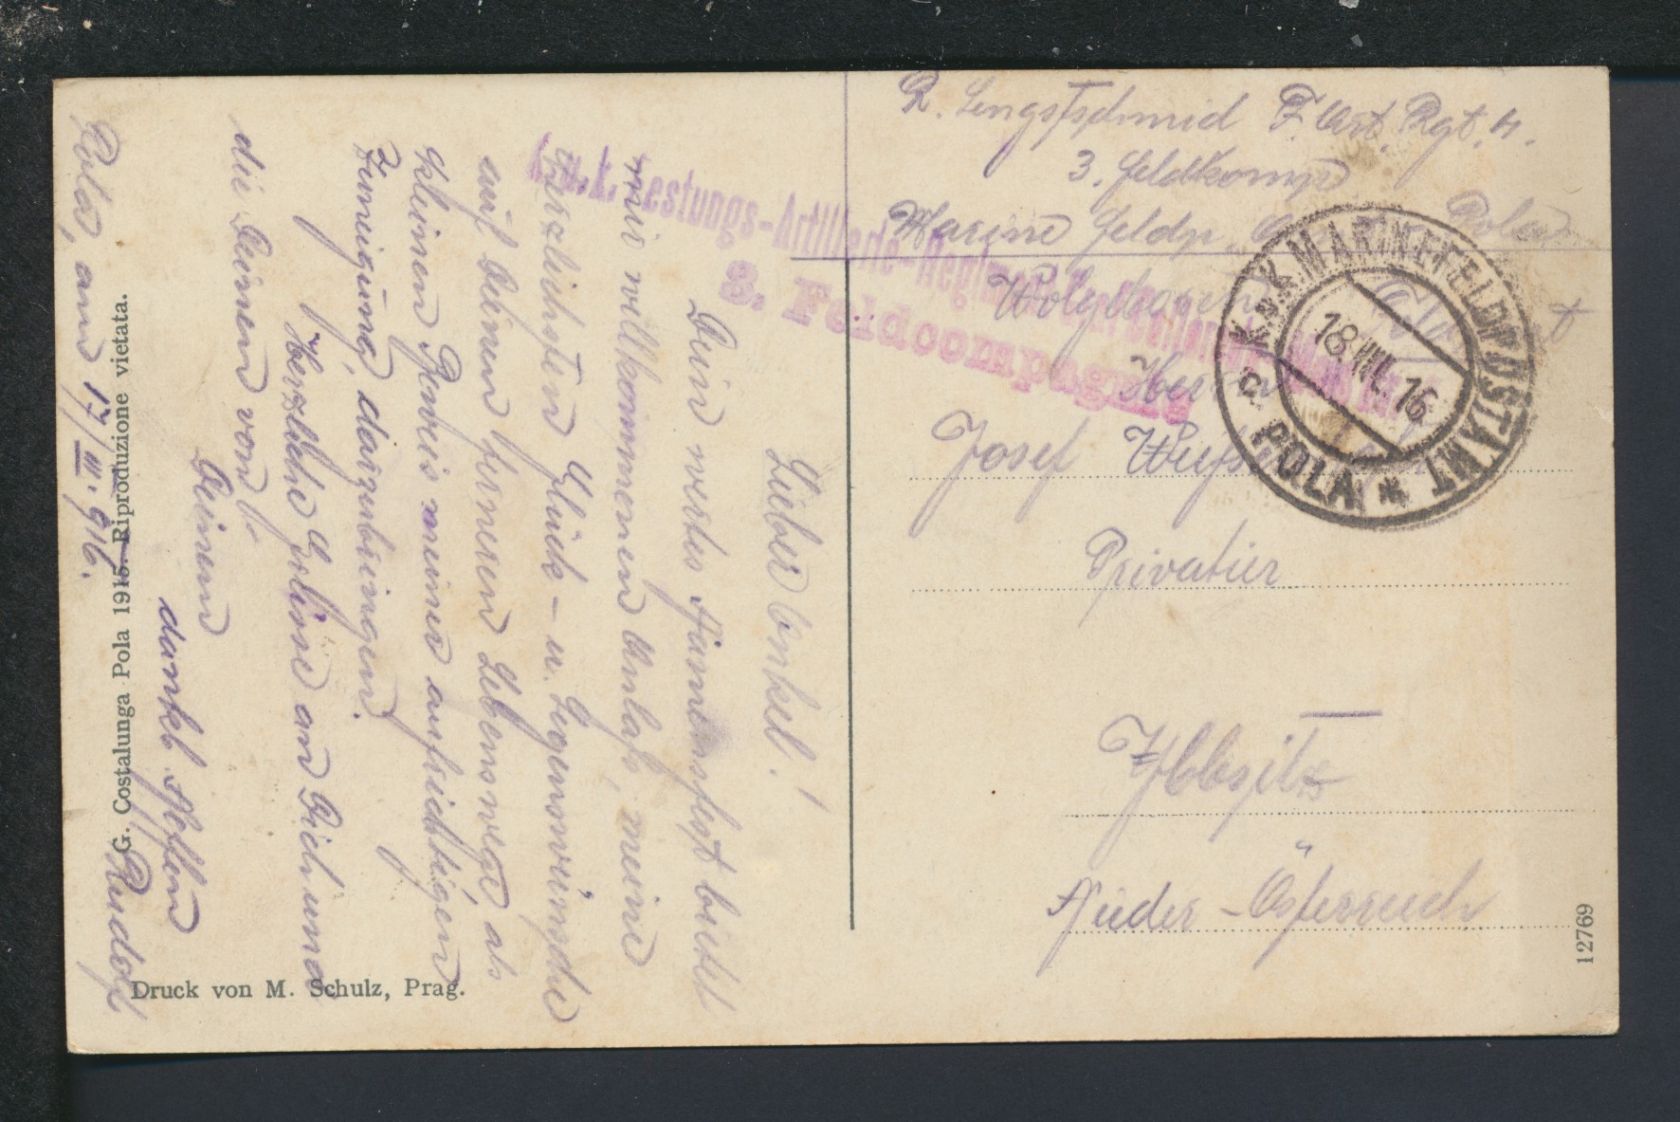 R. Lengstschmid F. Art. Rgt. 4.
3. Feldkomp
Marine Feldp. Pola
Wolgeboren
Herrn
Josef
Privatier
Ybbsitz
Nieder-Österreich
K.u.K. MARINEFELDPOSTAMT
POLA
18.III.16
k.u.k. Festungs-Artillerie-Regiment
3. Feldcompagnie
Lieber Onkel!
Dein wertes Namensfest bietet
mir willkommenen Anlaß, meine
herzlichsten Glück- u. Segenswünsche
auf Deinen ferneren Lebenswege als
kleinen Beweis meiner aufrichtigen
Zuneigung, darzubringen.
Herzliche Grüße an Dich und
die Deinen von
Deinem
dankb. Neffen
Rudolf
Pola, am 17/III. 916.
G. Costalunga Pola 1915. Riproduzione vietata.
Druck von M. Schulz, Prag.
12769